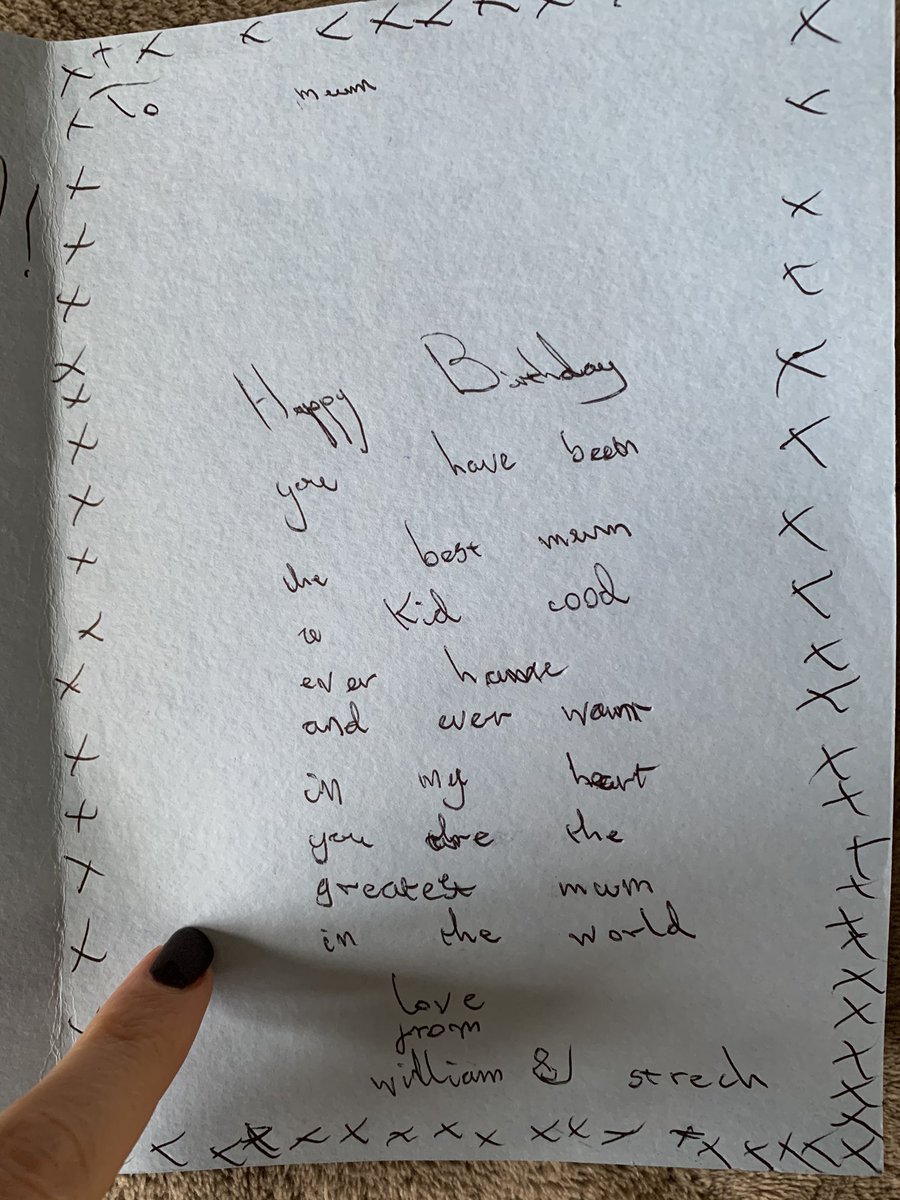 To mum
Happy Birthday
you have been
the best mum
a Kid cood
ever have
and ever want
in my heart
you are the
greatest mum
in the world
love
from
william & strech